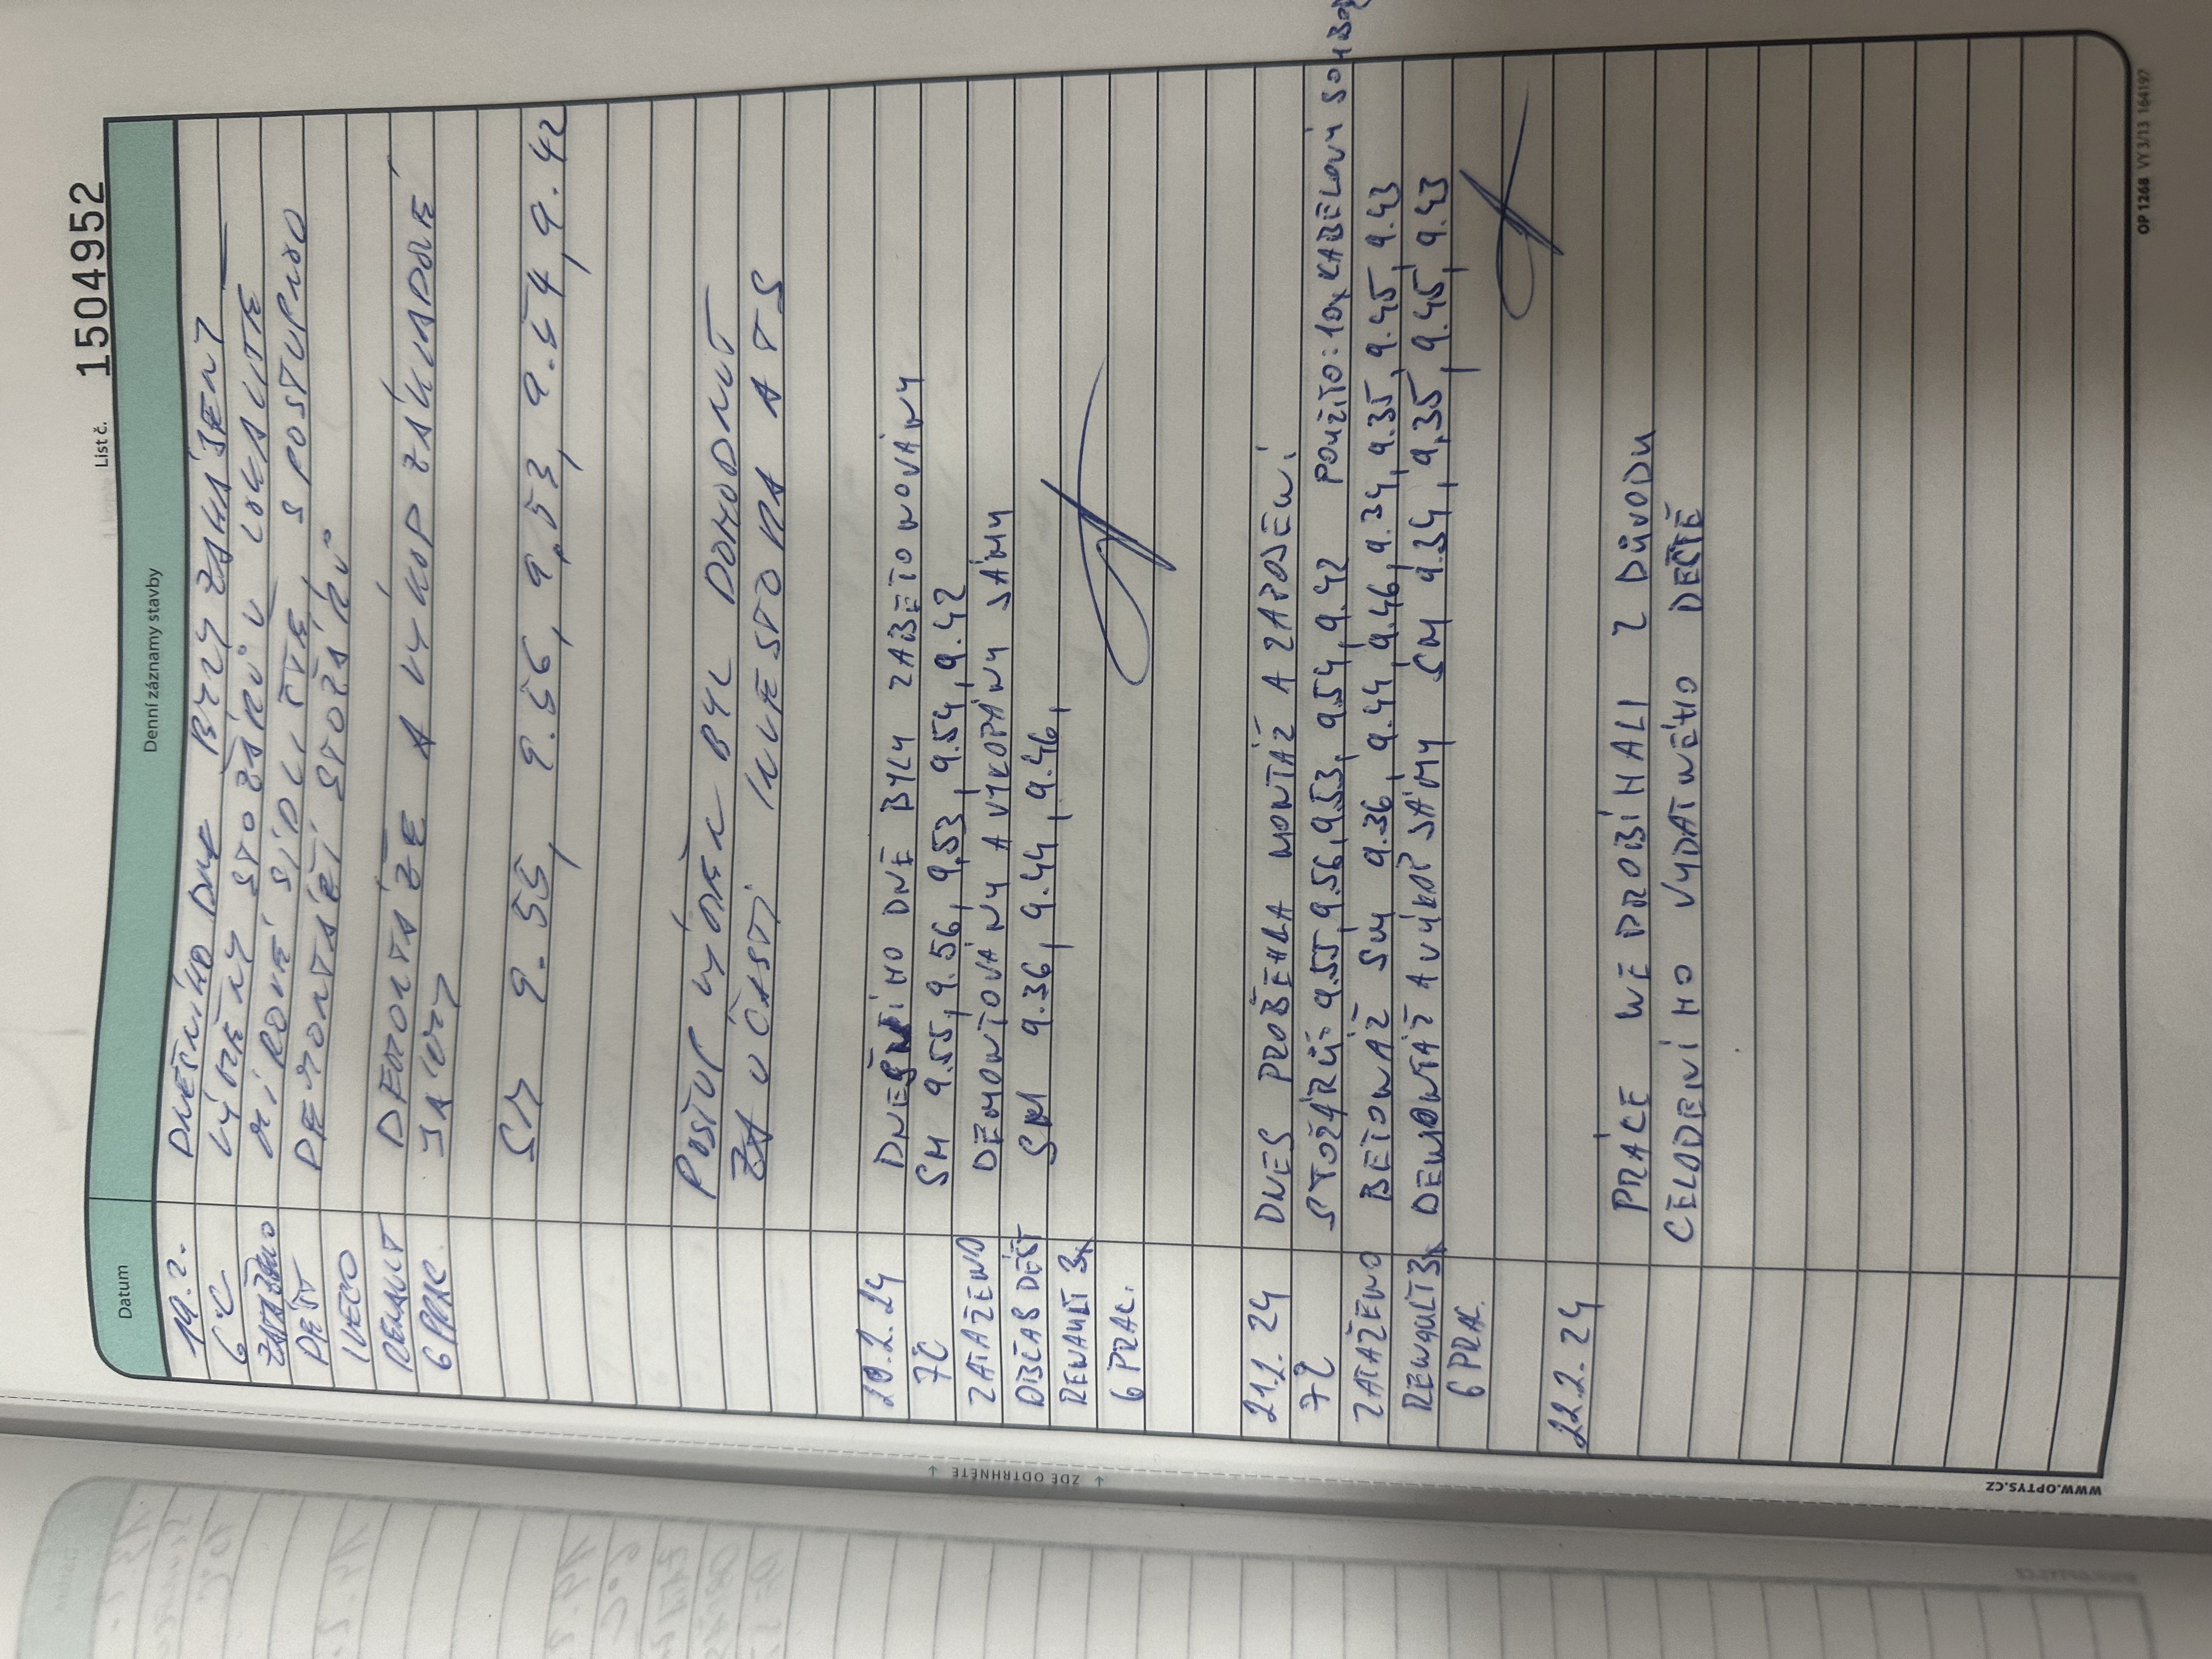 List č. 1504952
Datum Denní záznamy stavby
19.2. DNEŠNÍHO DNE BYLY ZAHÁJENY
6°C VÝMĚNY STOŽÁRŮ V LOKALITĚ
ZATAŽENO MÍROVÉ SÍDLIŠTĚ, S POSTUPNOU
DÉŠŤ DEMONTÁŽÍ STOŽÁRŮ
IVECO
RENAULT DEMONTÁŽE A VÝKOP ZÁKLADOVÉ
6 PRAC. JÁMY
SM 9.55, 9.56, 9.53, 9.54, 9.42
POSTUP VÝMĚN BYL DOHODNUT
ZA ÚČASTI INVESTORA A TS
20.2.24 DNEŠNÍHO DNE BYLY ZABETONOVÁNY
7°C SM 9.55, 9.56, 9.53, 9.54, 9.42
ZATAŽENO DEMONTOVÁNY A VYKOPÁNY JÁMY
OBČAS DÉŠŤ SM 9.36, 9.44, 9.46,
RENAULT 3x
6 PRAC.
21.2.24 DNES PROBĚHLA MONTÁŽ A ZAPOJENÍ
7°C STOŽÁRŮ: 9.55, 9.56, 9.53, 9.54, 9.42 POUŽITO: 10x KABELOVÝ SOUBOR
ZATAŽENO BETONÁŽ SM 9.36, 9.44, 9.46, 9.34, 9.35, 9.45, 9.43
RENAULT 3x DEMONTÁŽ A VÝKOP JÁMY SM 9.34, 9.35, 9.45, 9.43
6 PRAC.
22.2.24
PRÁCE NEPROBÍHALI Z DŮVODU
CELODENNÍHO VYDATNÉHO DEŠTĚ
ZDE ODTRHNĚTE
WWW.OPTYS.CZ
OP 1268 VY 3/13 164197